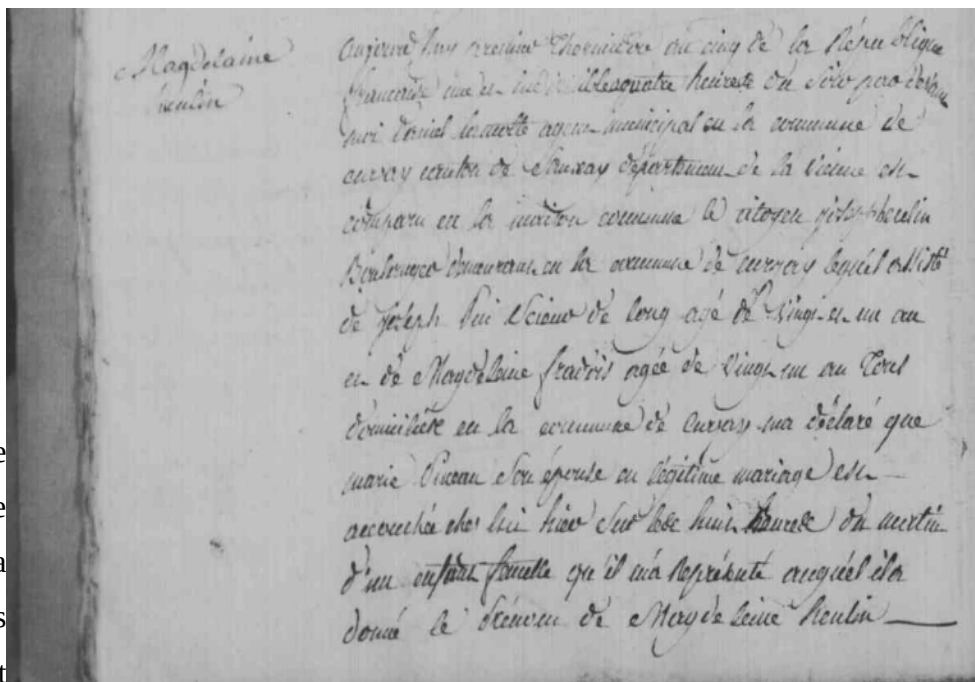 Magdelaine
heulin
aujourd'huy premier Thermidore an cinq de la République
française une et indivisible quatre heures du soir par devant
moi daniel lamotte agent municipal en la commune de
curzay canton de Sanxay département de la vienne est
comparu en la maison commune le citoyen joseph heulin
Boulanger demeurant en la commune de curzay lequel assisté
de joseph Scieur de long agé de vingt et un an
et de Magdeleine fradois agée de vingt un an Tous
domiciliés en la commune de Curzay ma déclaré que
marie Pineau son épouse en légitime mariage est
accouchée ches lui hier sur les huit heures du mertin
d'un enfant femelle qu'il má Représenté auquél il a
donné le Prénom de Magdeleine heulin
e
e
a
s
t